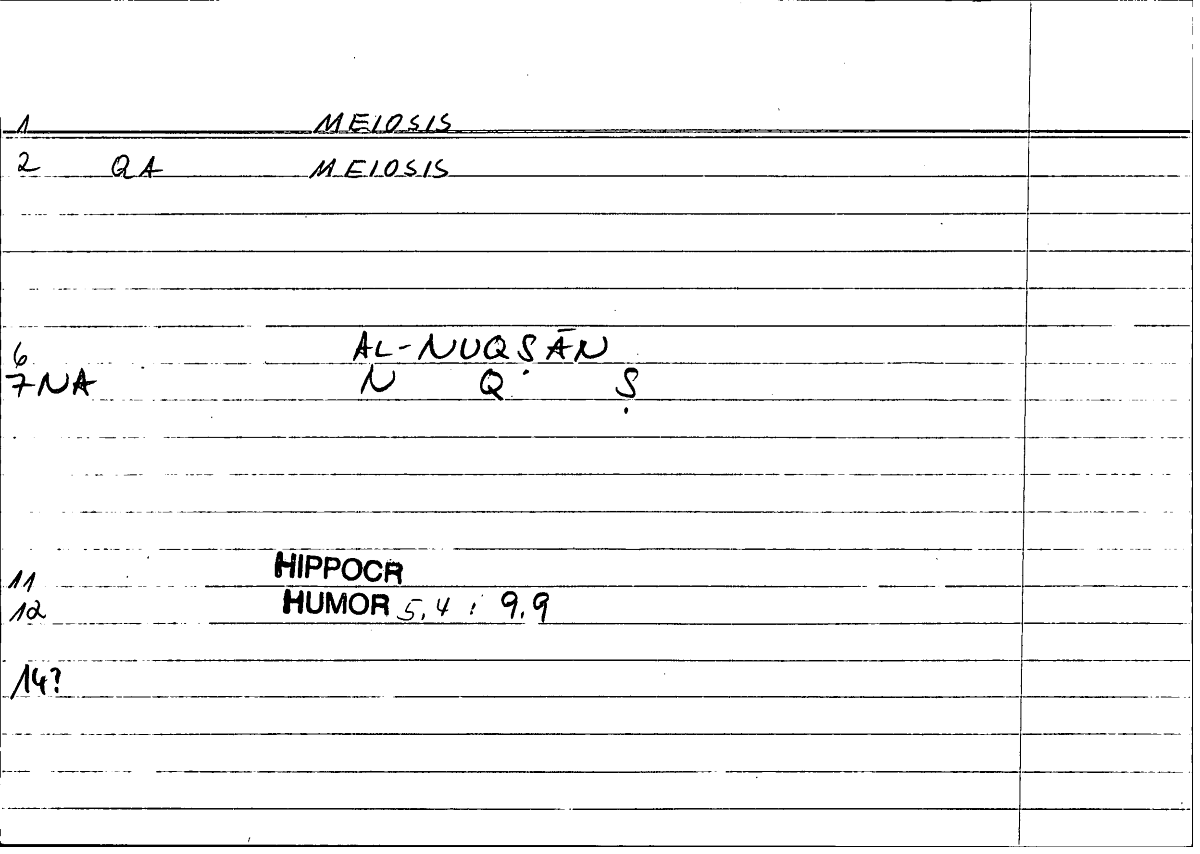 1 MEIOSIS
2 QA MEIOSIS
6 AL-NUQṢĀN
7NA N Q Ṣ
11 HIPPOCR
12 HUMOR 5,4 ; 9,9
14?